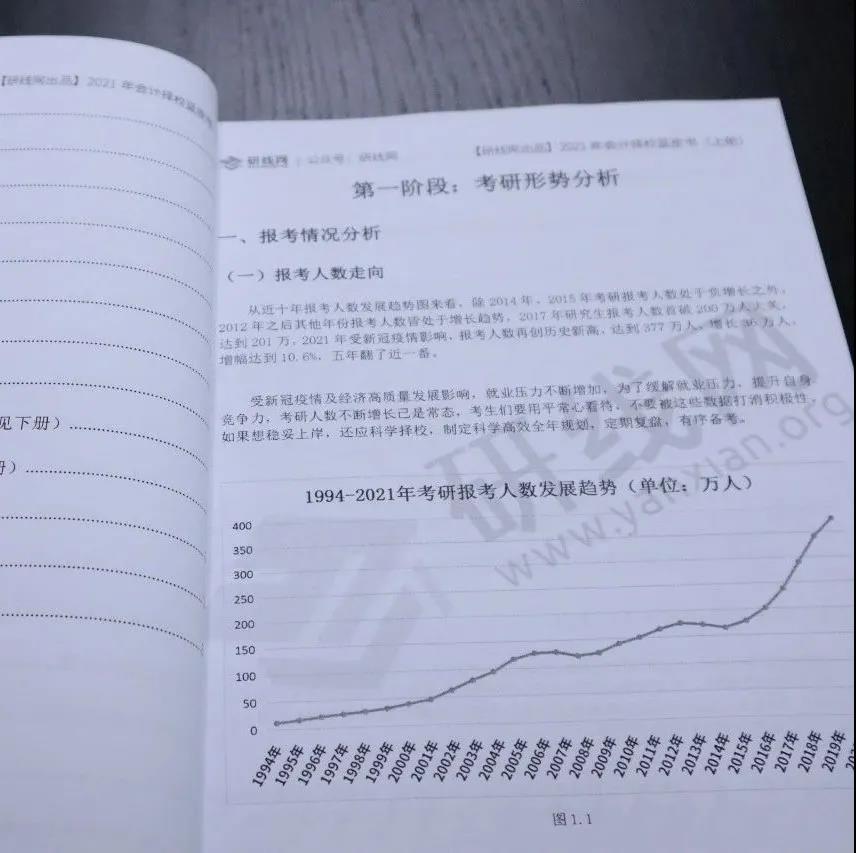 【研线网出品】2021 年会计择校蓝皮书
见下册）
册）
研线网 | 公众号：研线网
【研线网出品】2021 年会计择校蓝皮书（上册）
第一阶段：考研形势分析
一、报考情况分析
（一）报考人数走向
从近十年报考人数发展趋势图来看，除 2014 年、2015 年考研报考人数处于负增长之外，
2012 年之后其他年份报考人数皆处于增长趋势，2017 年研究生报考人数首破 200 万人大关，
达到 201 万，2021 年受新冠疫情影响，报考人数再创历史新高，达到 377 万人，增长 36 万人，
增幅达到 10.6%，五年翻了近一番。
受新冠疫情及经济高质量发展影响，就业压力不断增加，为了缓解就业压力、提升自身
竞争力，考研人数不断增长已是常态，考生们要用平常心看待，不要被这些数据打消积极性，
如果想稳妥上岸，还应科学择校，制定科学高效全年规划，定期复盘，有序备考。
研线网
www.yanxian.org
1994-2021年考研报考人数发展趋势（单位：万人）
400
350
300
250
200
150
100
50
0
1994年 1995年 1996年 1997年 1998年 1999年 2000年 2001年 2002年 2003年 2004年 2005年 2006年 2007年 2008年 2009年 2010年 2011年 2012年 2013年 2014年 2015年 2016年 2017年 2018年 2019年
图 1.1